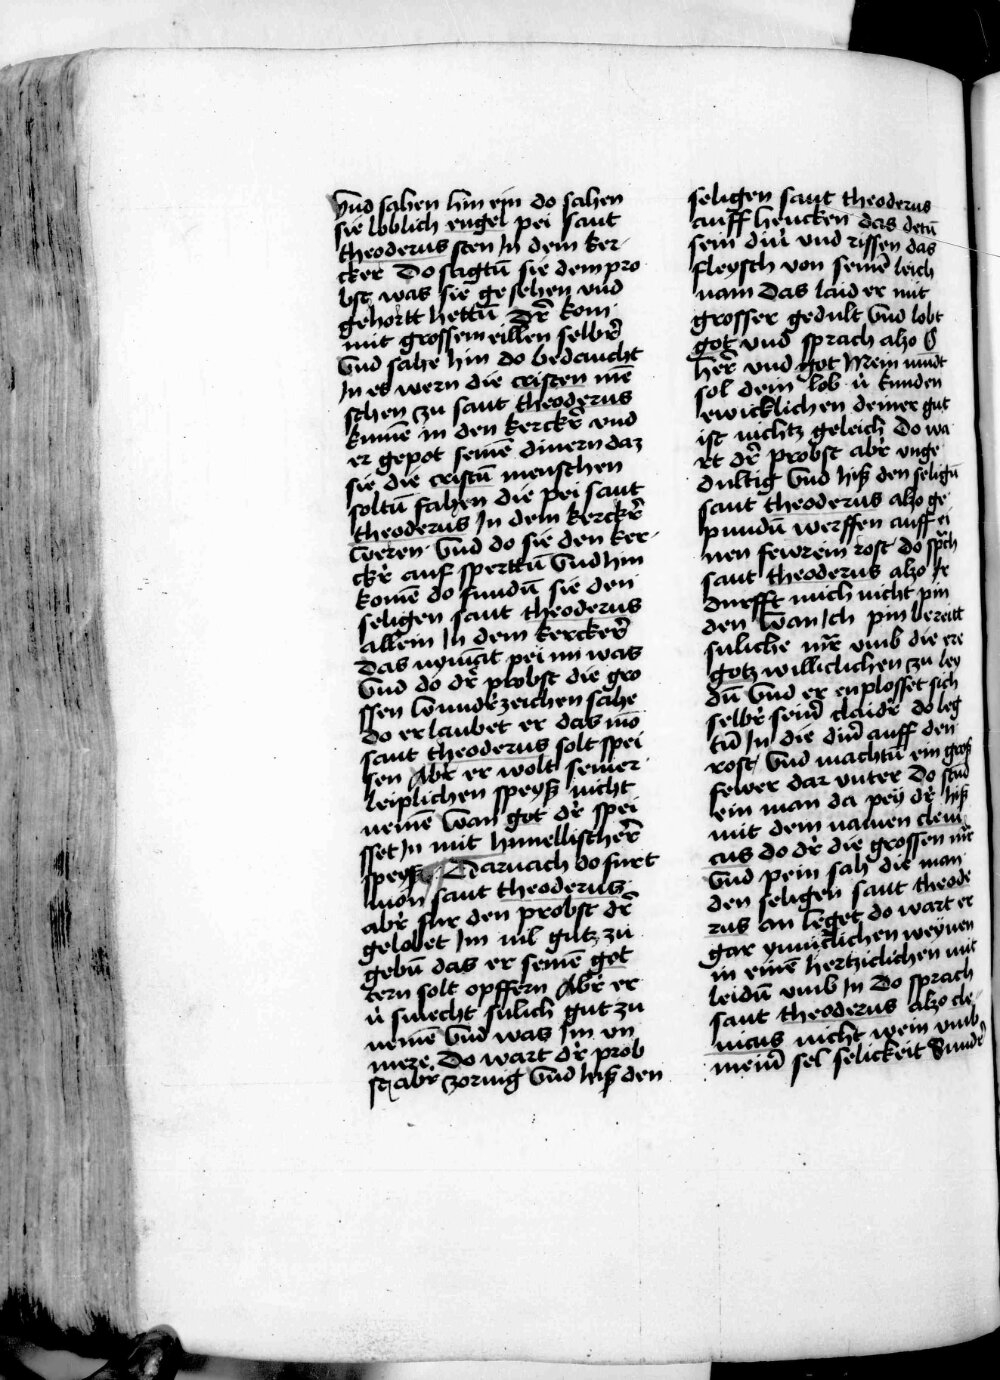 vnd sahen hin ein do sahen
sie loblich engel pei sant
theoderus sten In dem ker-
cker Do sagtū sie dem pro
bst was sie gesehen vnd
gehortt hettū Dr̄ kom
mit grossem eillen selbr̄
vnd sahe hin do bedaucht
In es wern die cristen mē
schen zu sant theoderus
kumē in den kerckr̄ vnd
er gepot seinē dinern daz
sie die cristū menschen
soltū fahen die pei sant
theoderus In dem kerckr̄
weren · vnd do sie den ker-
ckr̄ auf sperttū vnd hin
komē do fundū sie den
seligen sant theoderus
allein In dem kerckerr̄
Das nymāt pei im was
vnd do dr̄ probst die gro
ssen wundr̄zeichen sahe
do erlaubet er das mō
sant theoderus solt spei
sen Abr̄ er wolt seiner
leiplichen speyß nicht
nemē wan got dr̄ spei
sset In mit himellischer̄
speyß Darnach do furt
mon sant theoderus
abr̄ fur den probst dr̄
gelobet Im vil gutz zu
gebū das er seinē got
tern solt opffern Abr̄ er
v̄smecht sulich gut zu
nemē vnd was Im vn
mere Do wart dr̄ prob
st abr̄ zornig vnd hiß den
seligen sant theoderus
auff hencken das detū
sein din̄ vnd rissen das
fleysch von seinē leich
nam Das laid er mit
grosser gedult vnd lobt
got vnd sprach alzo O
her̄ vnd got Mein mūdt
sol dein lob v̄kunden
ewicklichen deiner gut
ist nichtz geleich Do wa
rt dr̄ probst abr̄ vnge
dultig vnd hiß den seligū
sant theoderus alzo ge
pundū werffen auff ei
nen fewrein rost · do spr̄ch
sant theoderus alzo Ir
durfft mich nicht pin
den wan Ich pin bereitt
suliche mr̄ vmb die ere
gotz williclichen zu ley
dū vnd er enplosset sich
selbr̄ seinr̄ claidr̄ do leg
tū In die din̄ auff den
rost vnd machtū ein groß
fewer dar vnter Do stūd
ein man da pey dr̄ hiß
mit dem namen clein
cus do dr̄ die grossen mr̄
vnd pein sah die man
den seligen sant theode
rus an leget do wart er
gar ynnr̄lichen weynen
in einē hertziclichen mit
leidū vmb In Do sprach
sant theoderus alzo cle-
nicus nicht wein vmb
meinr̄ sel selickeit Sundr̄